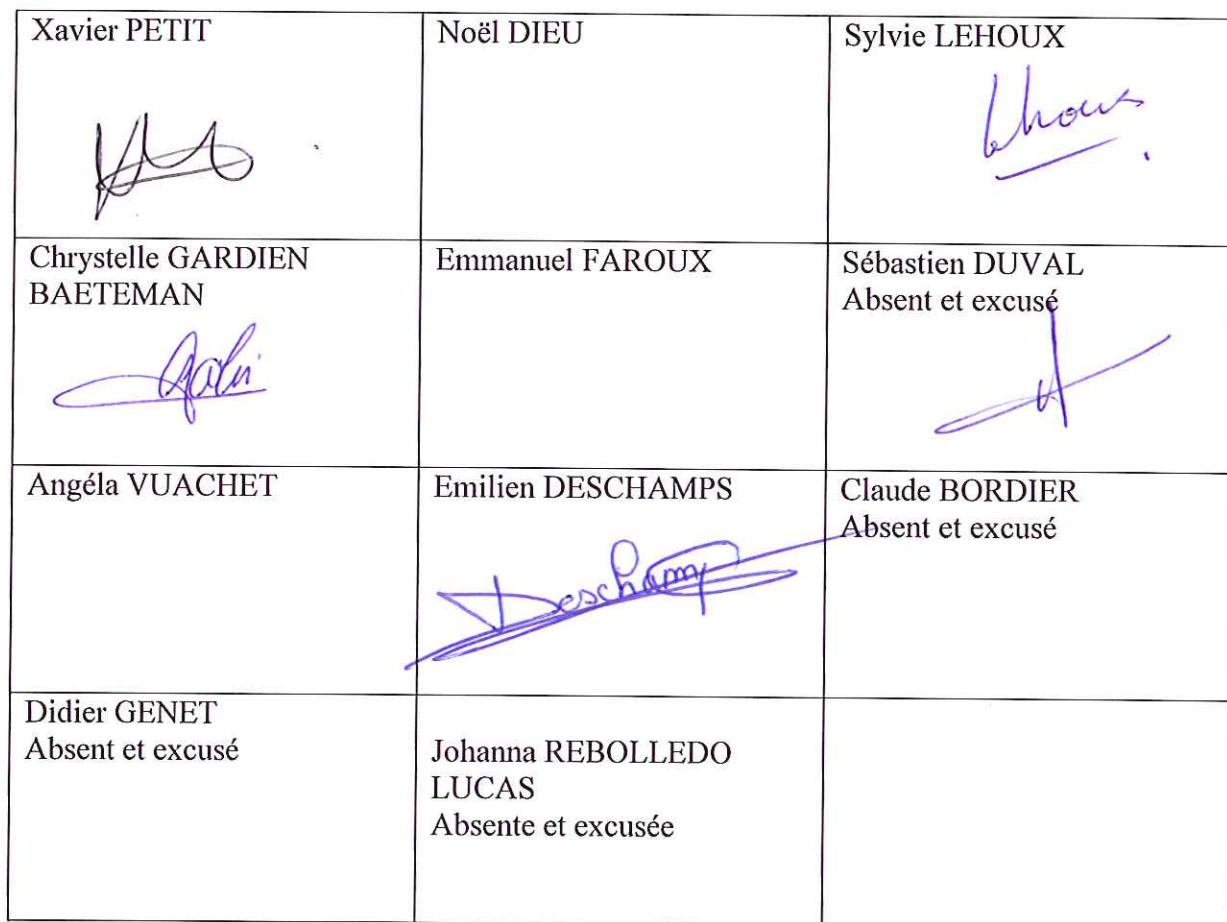 Xavier PETIT
Noël DIEU
Sylvie LEHOUX
Lehoux
Chrystelle GARDIEN
BAETEMAN
Emmanuel FAROUX
Sébastien DUVAL
Absent et excusé
Angéla VUACHET
Emilien DESCHAMPS
Deschamps
Claude BORDIER
Absent et excusé
Didier GENET
Absent et excusé
Johanna REBOLLEDO
LUCAS
Absente et excusée